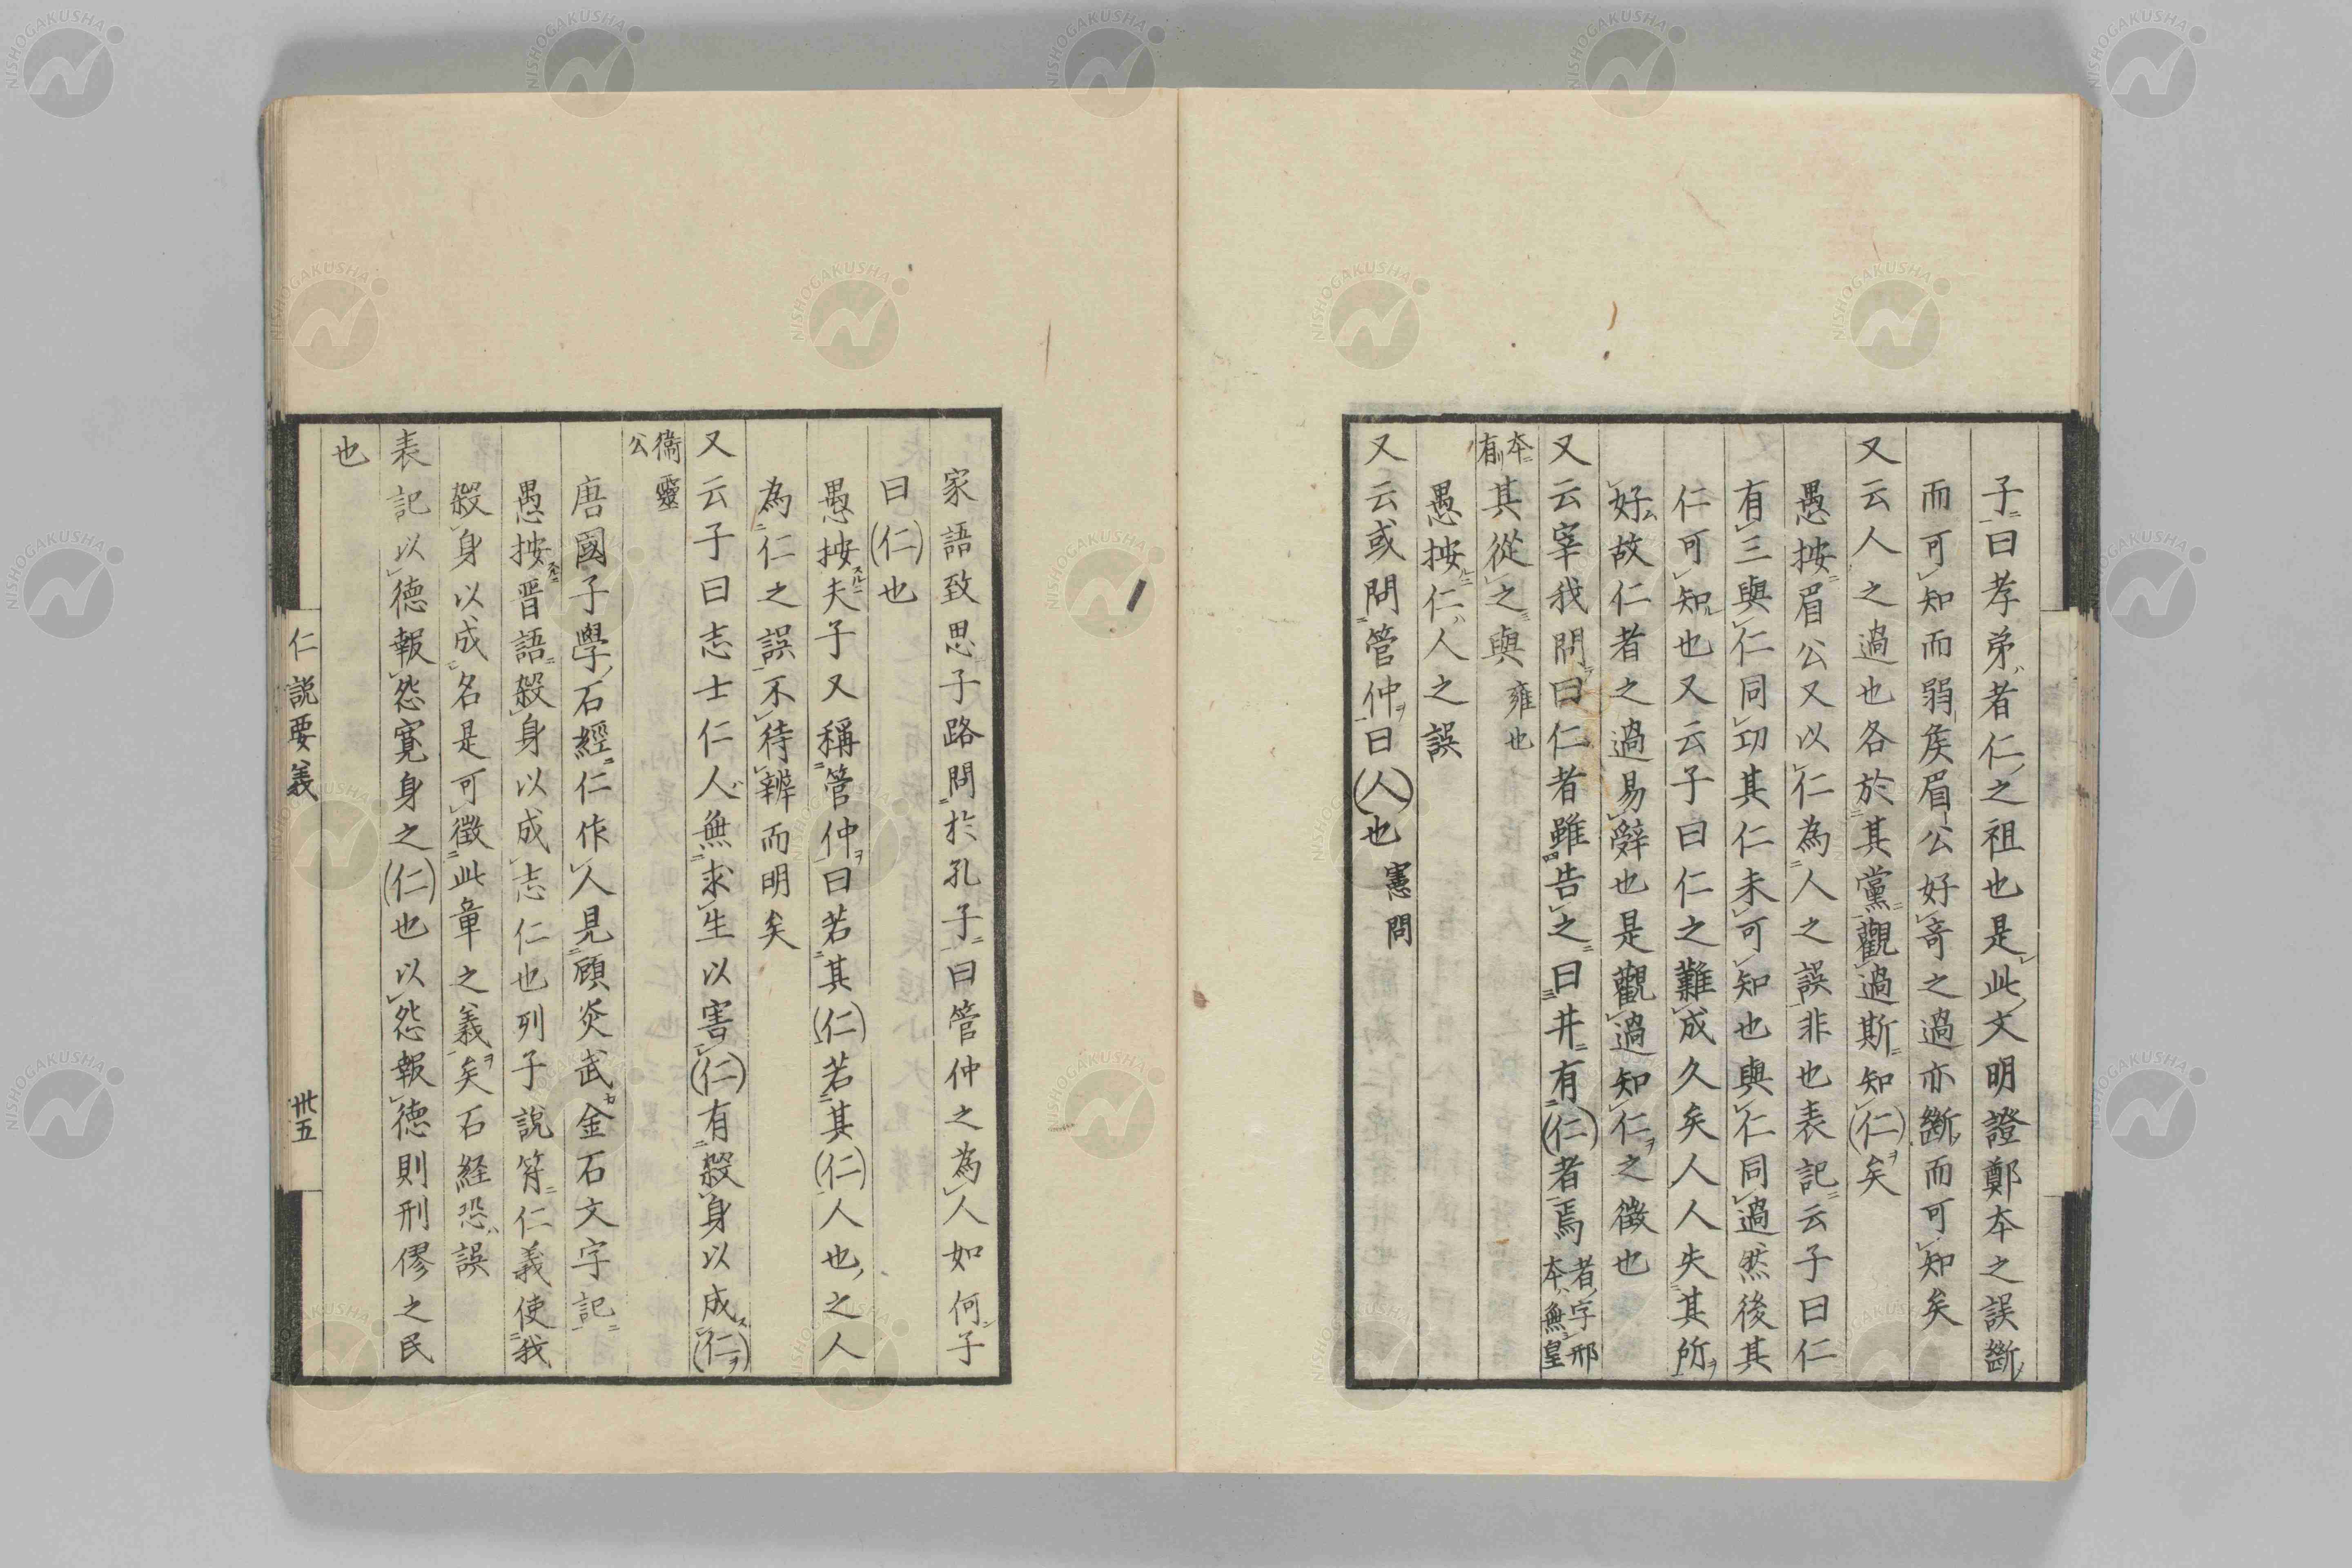 子曰孝弟者仁之祖也是此文明證鄭本之誤斷
而可知而弱矦眉公好竒之過亦斷而可知矣
又云人之過也各於其黨觀過斯知(仁)矣
愚按眉公又以仁為人之誤非也表記云子曰仁
有三與仁同功其仁未可知也與仁同過然後其
仁可知也又云子曰仁之難成久矣人人失其所
好故仁者之過易辭也是觀過知仁之徵也
又云宰我問曰仁者雖告之曰井有(仁)者焉者字邢本無皇
本有其從之與雍也
愚按仁人之誤
又云或問管仲曰(人)也憲問
家語致思子路問於孔子曰管仲之為人如何子
曰(仁)也
愚按夫子又稱管仲曰若其(仁)若其(仁)人也之人
為仁之誤不待辨而明矣
又云子曰志士仁人無求生以害(仁)有殺身以成(仁)
衞靈公
唐國子學石經仁作人見顧炎武金石文字記
愚按晋語殺身以成志仁也列子説符仁義使我
殺身以成名是可徵此章之義矣石経恐誤
表記以德報怨寬身之(仁)也以怨報德則刑僇之民
也
仁説要義
卅五
NISHOGAKUSHA